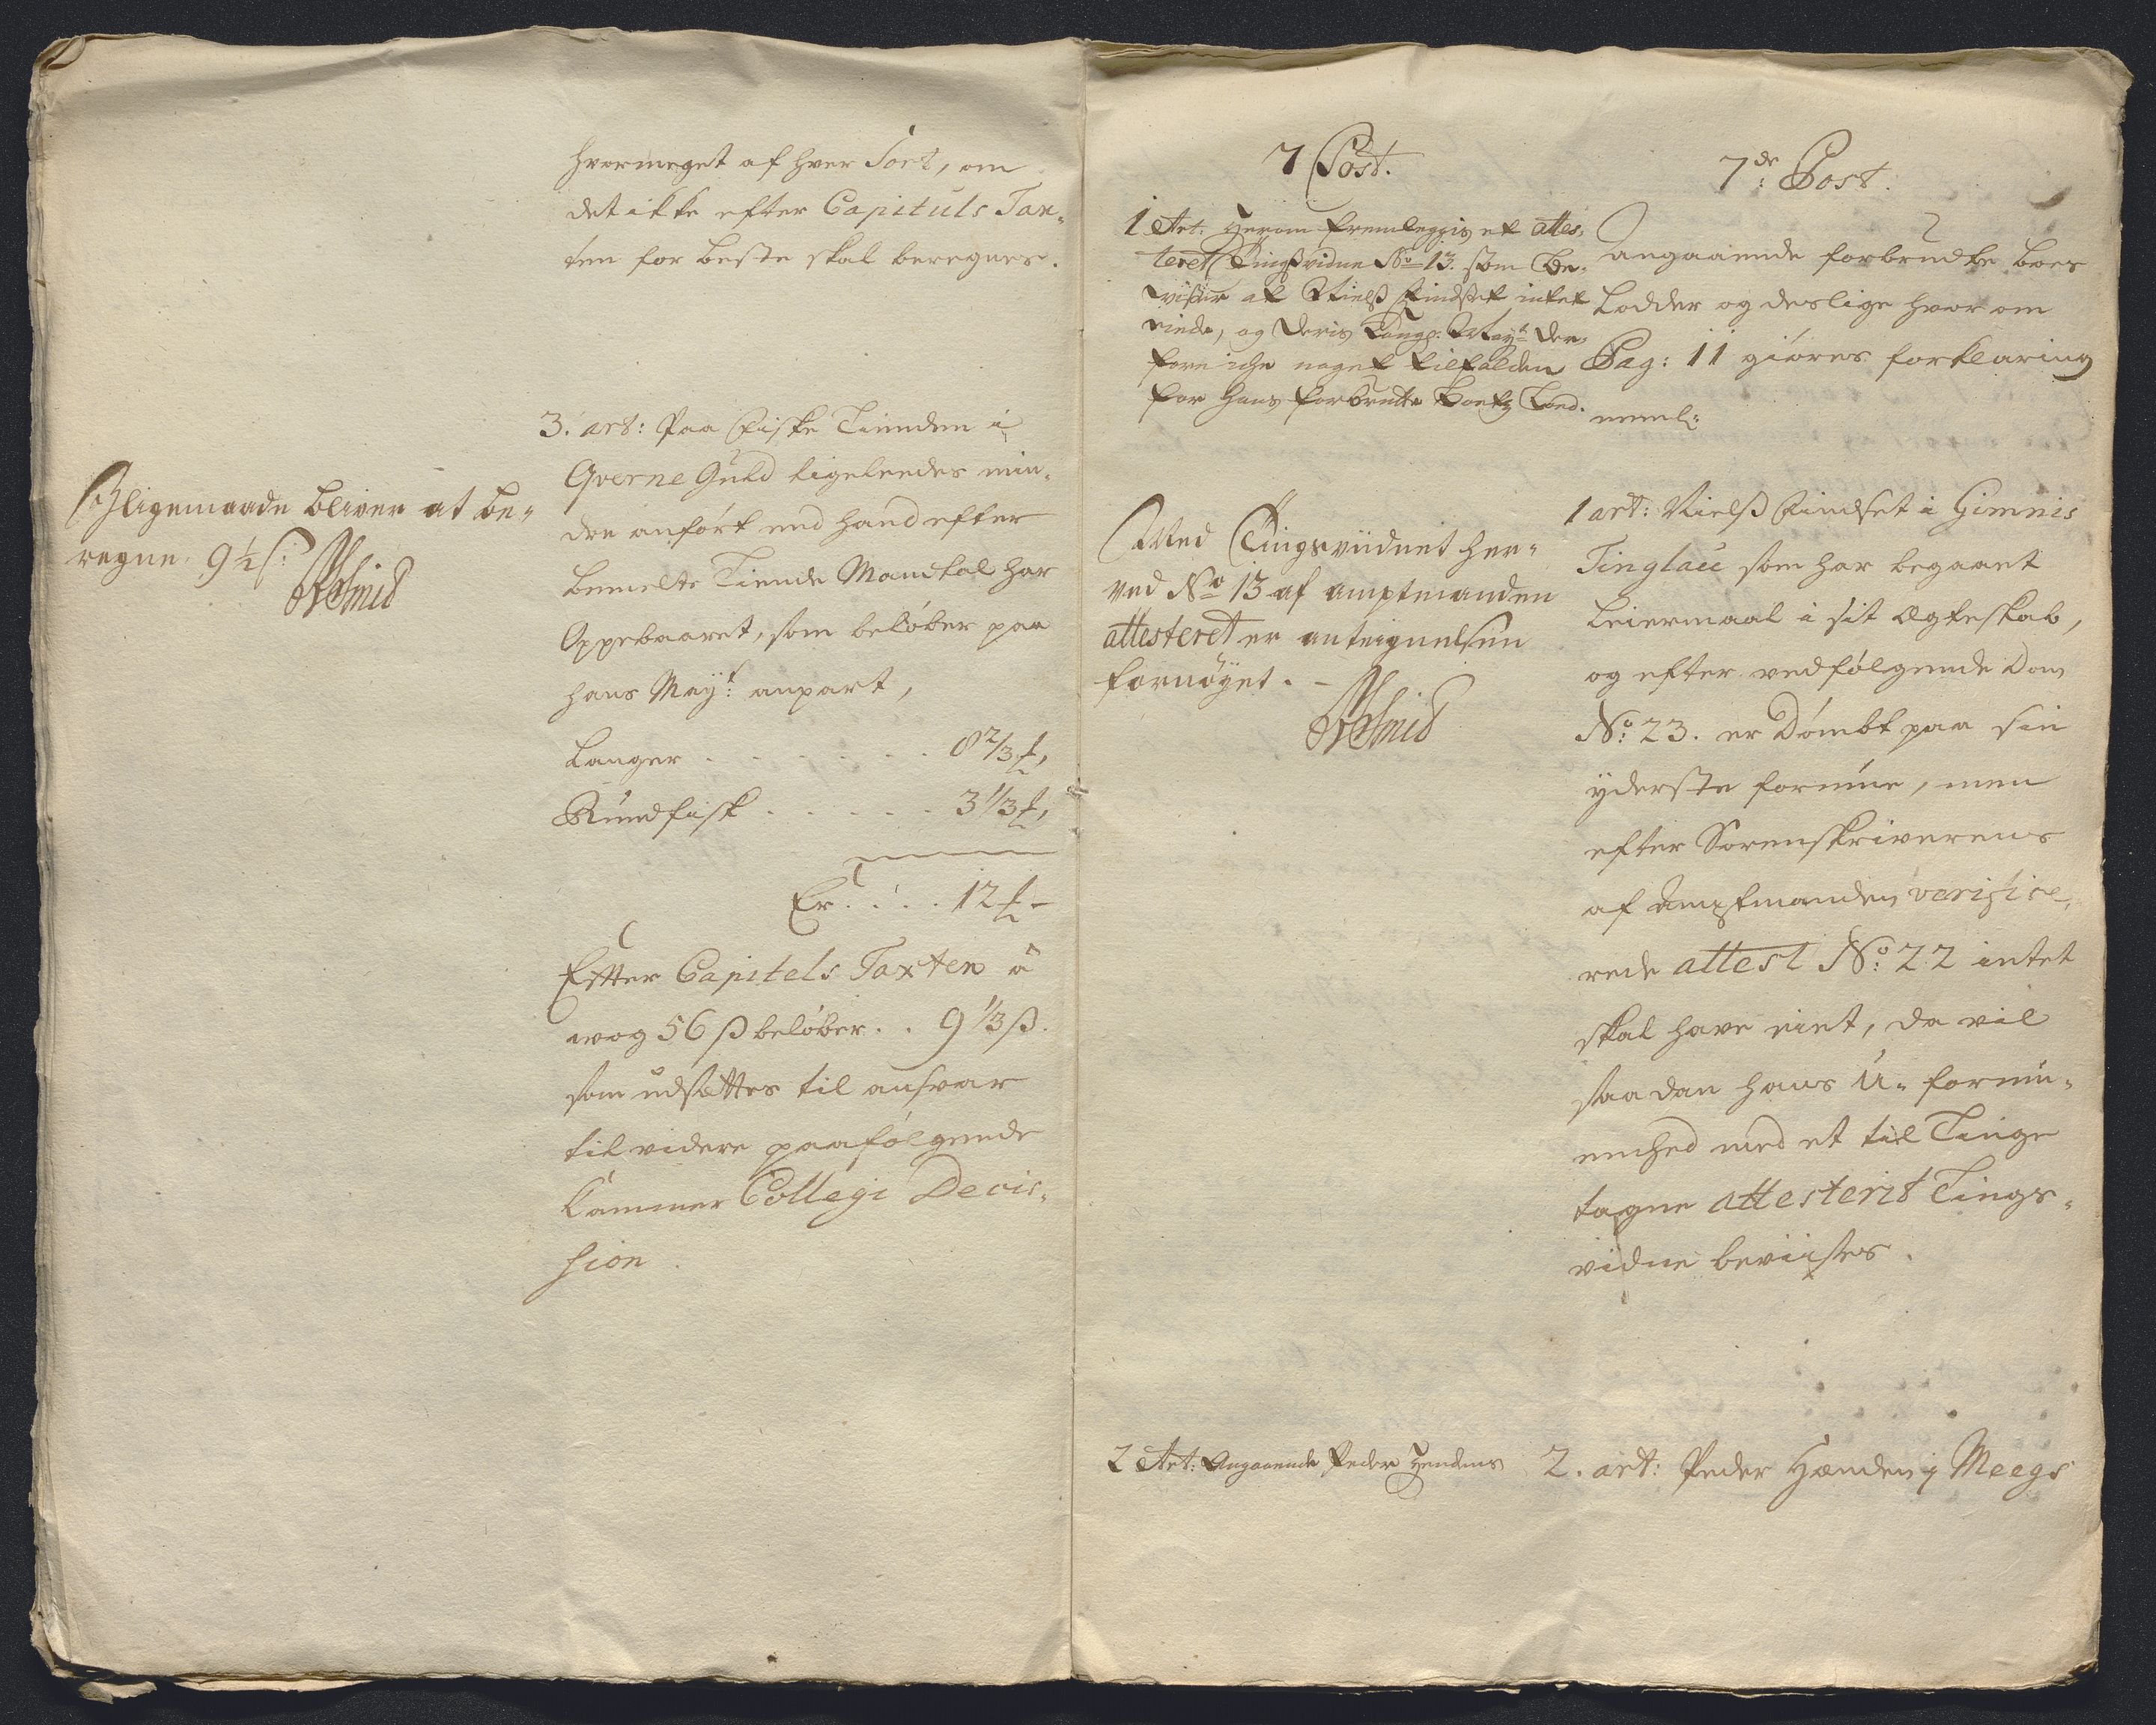 hvormeget af hver Sort, om
det ikke efter Capituls Tax-
ten for beste skal beregnes.
3. art: Paa Fiske Tienden i
Qverne Guld ligeleedes min-
dre anfört end hand efter
bemelte Tiende Mandtal har
Oppebaaret, som belöber paa
hans Mayt: anpart,
Langer . . . . . . 8 2/3 t,
Rundfisk . . . . . 3 1/3 t,
Er . . . . 12 t -
Efter Capitels Taxten a
wog 56 ß belöber . . 9 1/3 ß.
som udsættes til ansvar
til videre paafölgende
Cammer Collegi Decis-
sion.
Ligemaade bliver at be-
regne 9 1/2 ß:
7 Post.
1 Art: Herom fremleggis et attes-
teret Tingßvidne No 13. som be-
viser at Nielß Findset intet
eiede, og Deris Kongl: Mayt: der-
fore iche noget tilfalden
for hans forbrutte Boets Lod.
Med Tingsviidnet her-
ved No 13 af amptmanden
attesteret er anteignelsen
fornöyet. -
2 Art: Angaaende Peder Hendens
7de: Post.
angaaende forbrudte boes
Lodder og deslige hvor om
Pag: 11 giöres forklaring
neml:
1 art: Nielß Findset i Gimnis
Tinglau som har begaaet
Leiermaal i sit Ægteskab,
og efter vedfölgende Dom
No: 23. er Dömbt paa sin
yderste formue, men
efter Sorenskriverens
af Amptmanden verifice-
rede attest No: 22 intet
skal have eiet, da vil
saadan hans U-formu-
enhed med et til Tinge
tagne attesterit Tings-
vidne beviises.
2. art: Peder Hænden i Meegs